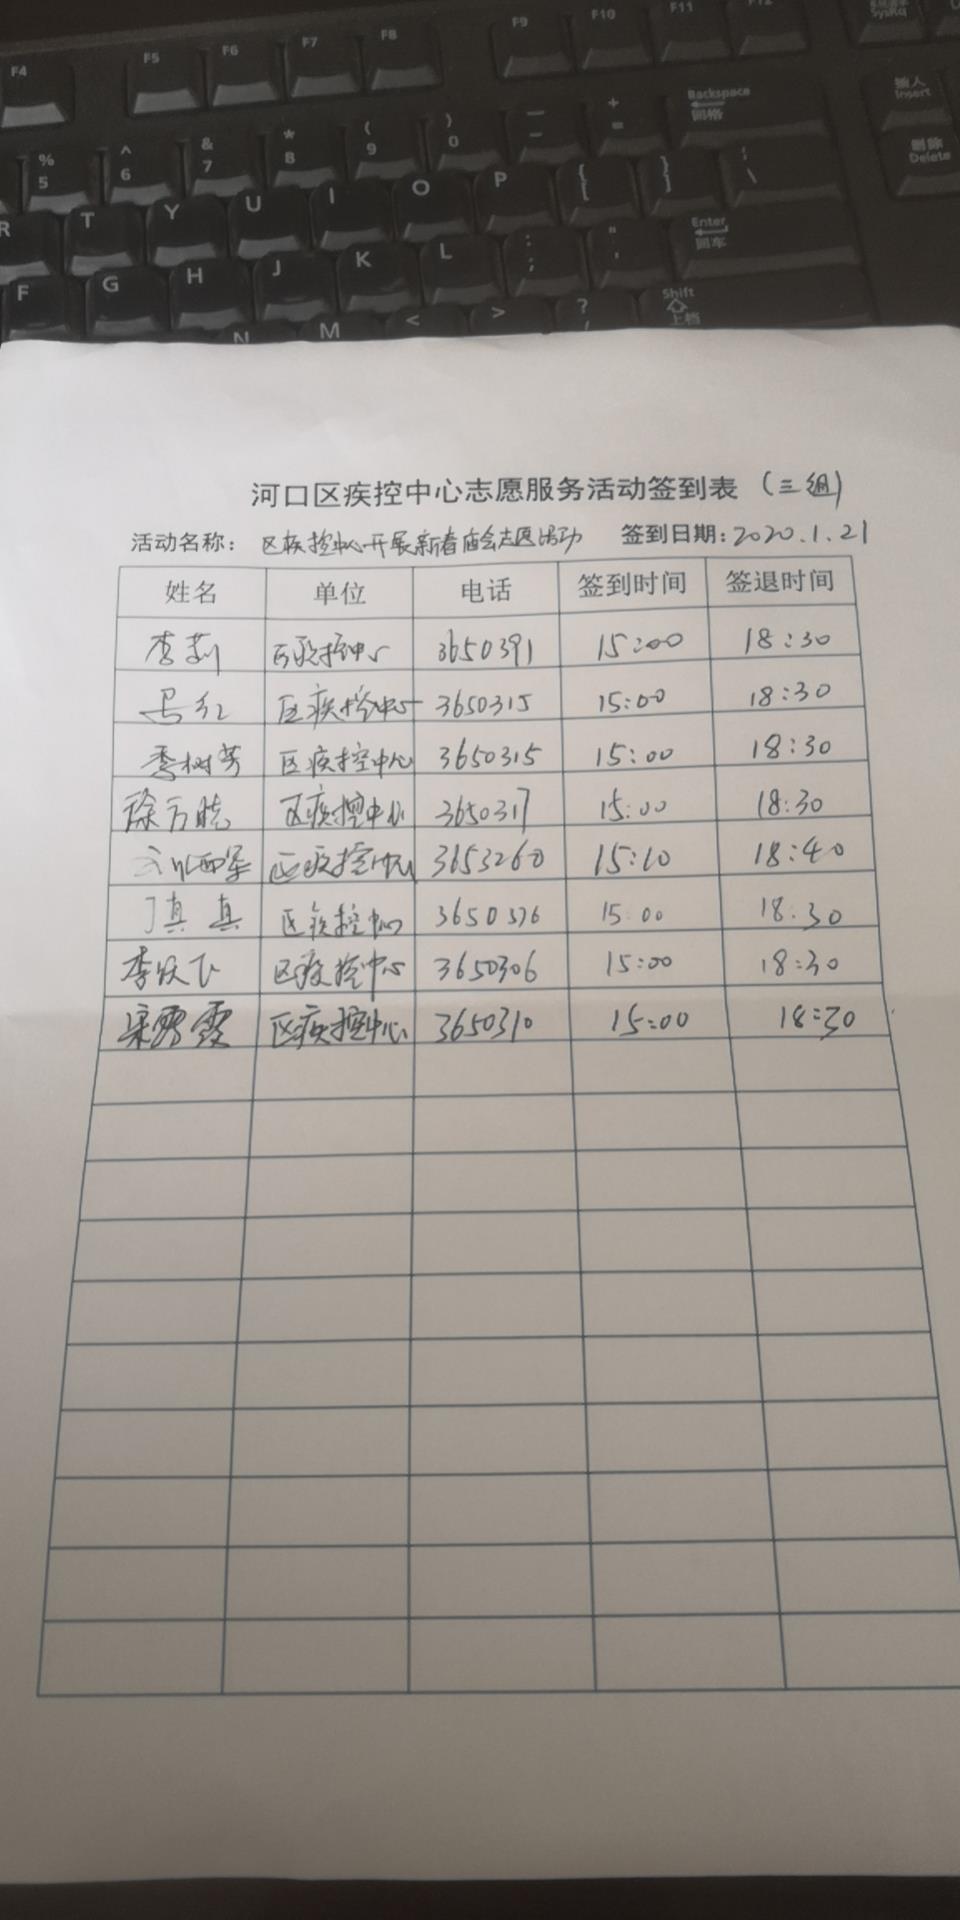 F4 F5 F6 F7 F8 F9 F10 F11 F12 SysRq
% 5 ^ 6 & 7 * 8 ( 9 ) 0 — - + = Backspace 回格 插入 Insert
R T Y U I O P { [ } ] ¦ \ 删除 Delete
F G H J K L : ; " ' Enter 回车
N M < > ? Shift 上档
河口区疾控中心志愿服务活动签到表 (三组)
活动名称: 区疾控中心开展新春庙会志愿活动 签到日期:2020.1.21
姓名 单位 电话 签到时间 签退时间
李莉 区疾控中心 3650391 15:00 18:30
马红 区疾控中心 3650315 15:00 18:30
季树芳 区疾控中心 3650315 15:00 18:30
徐方晓 区疾控中心 3650317 15:00 18:30
区疾控中心 3653260 15:10 18:40
丁真真 区疾控中心 3650376 15:00 18:30
李跃飞 区疾控中心 3650306 15:00 18:30
区疾控中心 3650310 15:00 18:30